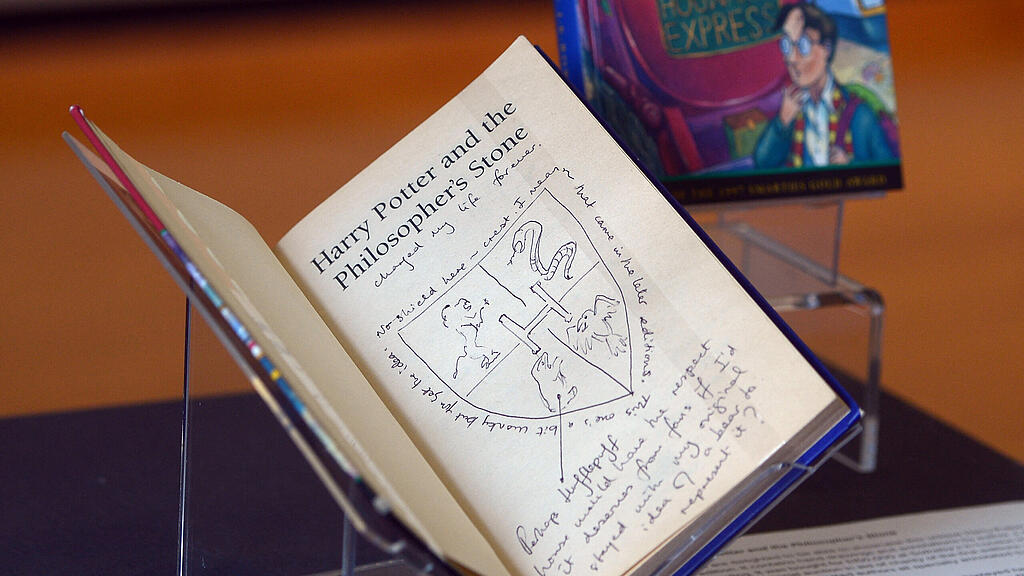 HOGWARTS
EXPRESS
THE 1997 SMARTIES GOLD AWARD
Harry Potter and the
Philosopher's Stone
changed my life forever.
No shield here – crest. I mean – that came in the later editions. This one's a bit wonky but you get the idea.
H
Perhaps Hufflepuff
house would have the respect
it deserves from fans if I'd
stayed with my original
idea of a bear to
represent it?
and the Philosopher's Stone